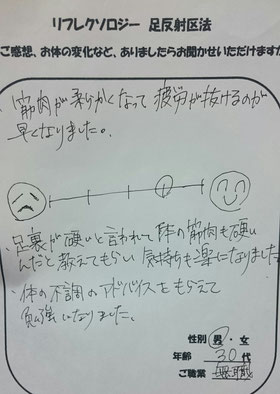 リフレクソロジー 足反射区法
ご感想、お体の変化など、ありましたらお聞かせいただけます
・筋肉が柔らかくなって疲労が抜けるのが
早くなりました。
・足裏が硬いと言われて体の筋肉も硬い
んだと教えてもらい気持ちも楽になりました
・体の不調のアドバイスをもらえて
勉強になりました。
性別 男・女
年齢 30代
ご職業 無職